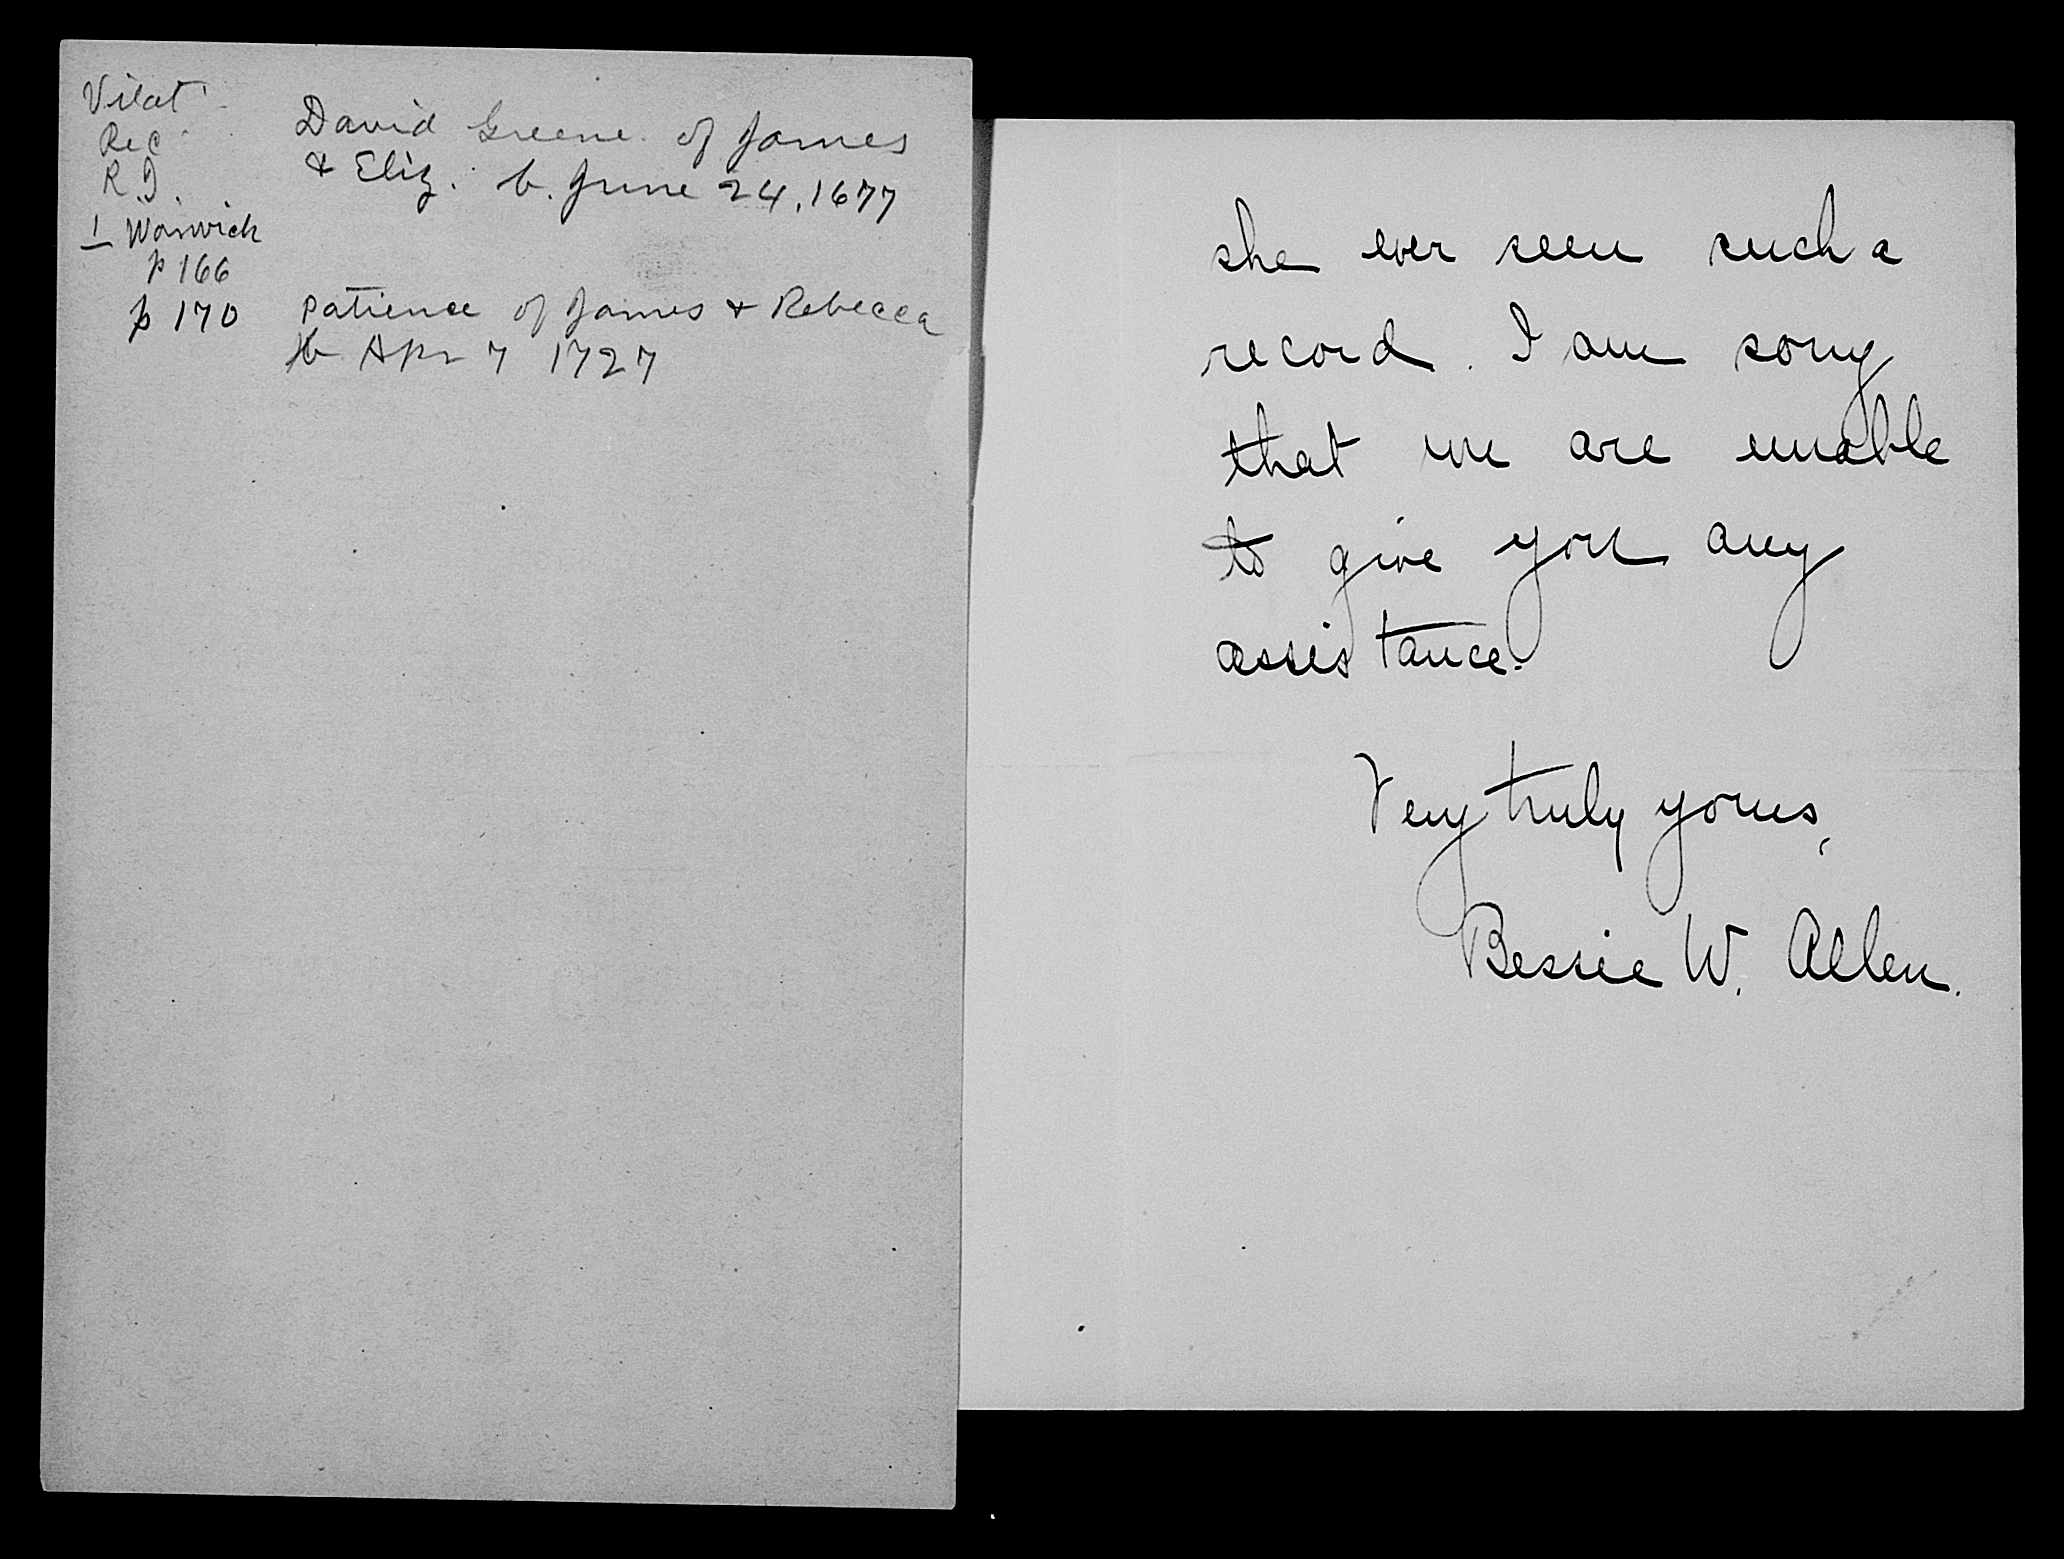 Vitat
Rec
R.I.
1 Warwick
p 166
p 170
David Greene of James
& Eliz. b. June 24, 1677
Patience of James & Rebecca
b Apr 7 1727
she ever seen such a
record. I am sorry
that we are unable
to give you any
assistance.
Very truly yours,
Bessie W. Allen.